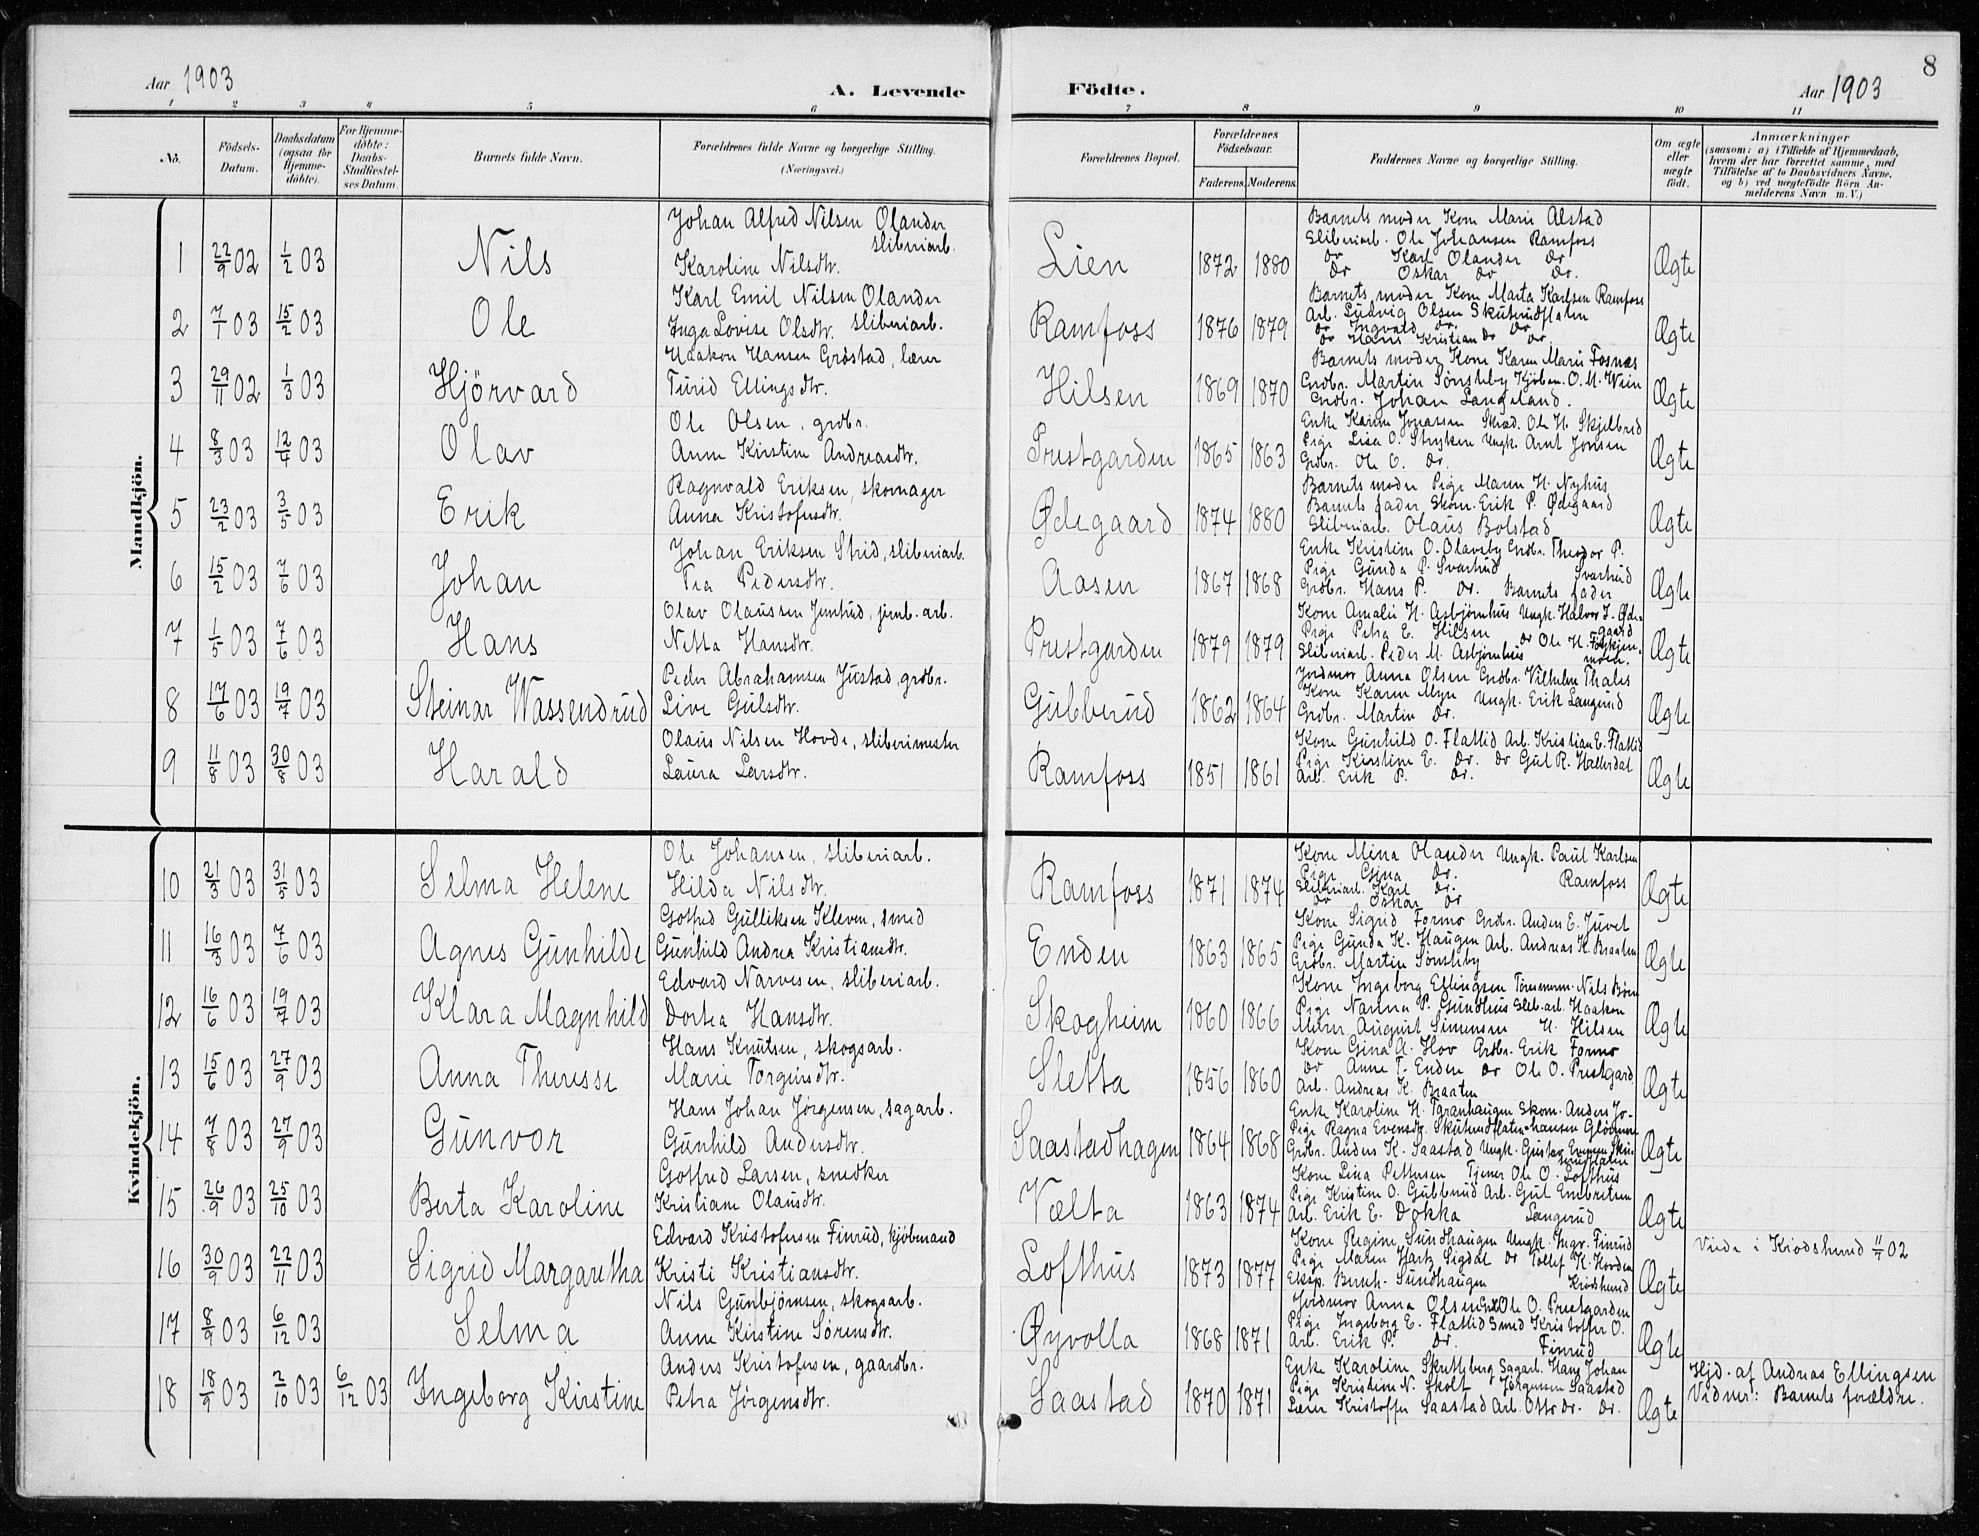 8
Aar 1903
A. Levende Födte.
Aar 1903
1 2 3 4 5 6 7 8 9 10 11
No.
Födsels-Datum.
Daabsdatum (ogsaa for Hjemme-döbte).
For Hjemme-döbte: Daabs-Stadfæstel-ses Datum.
Barnets fulde Navn.
Forældrenes fulde Navne og borgerlige Stilling.
(Næringsvei.)
Forældrenes Bopæl.
Forældrenes Födselsaar.
Faderens. Moderens.
Faddernes Navne og borgerlige Stilling.
Om ægte eller uægte födt.
Anmærkninger
(saasom: a) i Tilfælde af Hjemmedaab, hvem der har forrettet samme, med Tilföielse af to Daabsvidners Navne, og b) ved uægtefödte Börn An-melderens Navn m. V.)
Mandkjön.
Johan Alfred Nilsen Olander
sliberiarb.
1 22/9 02 1/2 03 Nils
Karoline Nilsdtr.
Lien 1872 1880
Barnets moder Kone Marie Alstad
Sliberiarb. Ole Johansen Ramfoss
Do Karl Olander Do
Do Oskar Do Do.
Ægte
Karl Emil Nilsen Olander
2 7/1 03 15/2 03 Ole
Inga Lovise Olsdtr. sliberiarb.
Ramfoss 1876 1879
Barnets moder Kone Marta Karlsen Ramfoss
Arb. Ludvig Olsen Skuterudflaten
Do Ingvald Do. Do
Do Hans Kristian Do Do.
Ægte
Haakon Hansen Gröstad, lærer
3 29/11 02 1/3 03 Hjörvard
Turid Ellingsdtr.
Hilsen 1869 1870
Barnets moder Kone Karen Marie Fosnæs
Grdbr. Martin Sønsteby Kjöbm. O. M. Wein
Grdbr. Johan Langeland.
Ægte
Ole Olsen, grdbr.
4 8/3 03 12/4 03 Olav
Anne Kirstine Andreasdtr.
Prestgarden 1865 1863
Enke Karen Jonassen Skræd. Ole H. Skjelbred
Pige Lisa O. Stryken Ungk. Arnt Jonsen
Grdbr. Ole O. Do.
Ægte
Ragnvald Eriksen, skomager
5 23/2 03 3/5 03 Erik
Anna Kristofersdtr.
Ødegaard 1874 1880
Barnets moder Pige Maren H. Nyhus
Barnets fader Skom. Erik P. Ødegaard
Sliberiarb. Olaus Bolstad
Ægte
Johan Eriksen Strid, sliberiarb.
6 15/2 03 7/6 03 Johan
Tea Pedersdtr.
Aasen 1867 1868
Enke Kristine O. Olavsby Grdbr. Theodor P.
Pige Gunda P. Svartrud Svartrud
Grdbr. Hans P. Do. Barnets fader
Ægte
Olav Olaussen Jentud, jernb. arb.
7 1/5 03 7/6 03 Hans
Netta Hansdtr.
Prestgarden 1879 1879
Kone Amalie H. Asbjørnhus Ungk. Halvor I. Øde-
Pige Petra E. Hilsen Do Ole H. gaard
Sliberiarb. Peder M. Asbjørnhus
Ægte
Peder Abrahamsen Justad, grdbr.
8 17/6 03 19/7 03 Steinar Wassendrud
Live Gulsdtr.
Gubberud 1862 1864
Jordmor Anna Olsen Grdbr. Vilhelm Thales
Kone Karen Myre Ungk. Erik Langerud
Grdbr. Martin Do.
Ægte
Olaus Nilsen Hovde, sliberimester
9 11/8 03 30/8 03 Harald
Laura Larsdtr.
Ramfoss 1851 1861
Kone Gunhild O. Flattid Arb. Kristian E. Flattid
Pige Kirstine E. Do. Do Gul R. Hallerdal
Arb. Erik P. Do.
Ægte
Kvindekjön.
Ole Johansen, sliberiarb.
10 21/3 03 31/5 03 Selma Helene
Hilda Nilsdtr.
Ramfoss 1871 1874
Kone Mina Olander Ungk. Paul Karlsen
Pige Gina Do. Ramfoss
Sliberiarb. Karl Do.
Do Oskar Do
Ægte
Gotfred Gulliksen Kleven, smed
11 16/3 03 7/6 03 Agnes Gunhilde
Gunhild Andrea Kristiansdtr.
Enden 1863 1865
Kone Sigrid Formo Grdbr. Anders E. Juvet
Pige Gunda K. Haugen Arb. Andreas K. Braaten
Grdbr. Martin Sønsteby
Ægte
Edvard Narvesen, sliberiarb.
12 16/6 03 19/7 03 Klara Magnhild
Dortea Hansdtr.
Skogheim 1860 1866
Kone Ingeborg Ellingsen Tömmerm. Nils Börn
Pige Nanna P. Gundhus Slib.arb. Haakon
Møller August Simensen H. Hilsen
Ægte
Hans Knutsen, skogsarb.
13 15/6 03 27/9 03 Anna Therese
Marie Torgersdtr.
Sletta 1856 1860
Kone Gina A. Hov Grdbr. Erik Formo
Do Anne T. Enden Do Ole O. Prestgard
Arb. Andreas K. Braaten
Ægte
Hans Johan Jörgensen, sagarb.
14 7/8 03 27/9 03 Gunvor
Gunhild Andersdtr.
Saastadhagen 1864 1868
Enke Karoline H. Tøranhaugen Skom. Anders Jo-
Pige Ragna Evensdtr. Skuterudflaten hansen
Grdbr. Anders K. Saastad Ungk. Gustav Evensen Sku-
terudflaten
Ægte
Gotfred Larsen, snedker
15 26/9 03 25/10 03 Berta Karoline
Kristiane Olausdtr.
Vælta 1863 1874
Kone Lina Pettersen Tjener Ole O. Lofthus
Pige Kristine O. Gubberud Arb. Gul Embretsen
Arb. Erik E. Dokka Langerud
Ægte
Edvard Kristofersen Finrud, kjöbmand
16 30/9 03 22/11 03 Sigrid Margaretha
Kristi Kristiansdtr.
Lofthus 1873 1877
Kone Regine Sundhaugen Ungk. Ingv. Finrud
Pige Maren Hartz Sigdal Do Tollef K. Hovden
Eksp. Bernh. Sundhaugen Krödsherred
Ægte
Viede i Krödsherred 11/7 02
Nils Gunbjörnsen, skogsarb.
17 8/9 03 6/12 03 Selma
Anne Kirstine Sörensdtr.
Øyvolla 1868 1871
Jordmor Anna Olsen Grdbr. Ole O. Prestgarden
Pige Ingeborg E. Flattid Smed Kristoffer O.
Arb. Erik P. Do. Finrud
Ægte
Anders Kristofersen, gaardbr.
18 18/9 03 2/10 03 6/12 03 Ingeborg Kirstine
Petra Jörgensdtr.
Saastad 1870 1871
Enke Karoline Skretteberg Sagarb. Hans Johan
Pige Kristine N. Skolt Jörgensen Saastad
Lærer Kristoffer Saastad Arb. Otto Do. Do.
Ægte
Hjd. af Andreas Ellingsen
Vidner: Barnets forældre.